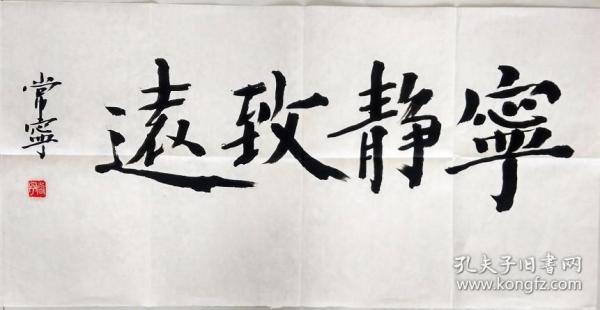 寧静致遠
常寧
孔夫子旧书网
www.kongfz.com